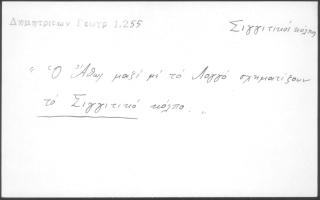 Δημητριεων Γεωγρ 1.255
Σιγγιτικός κόλπος
"Ὁ Ἄθως μαζί μέ τό Λογγό σχηματίζουν
τό Σιγγιτικό κόλπο."